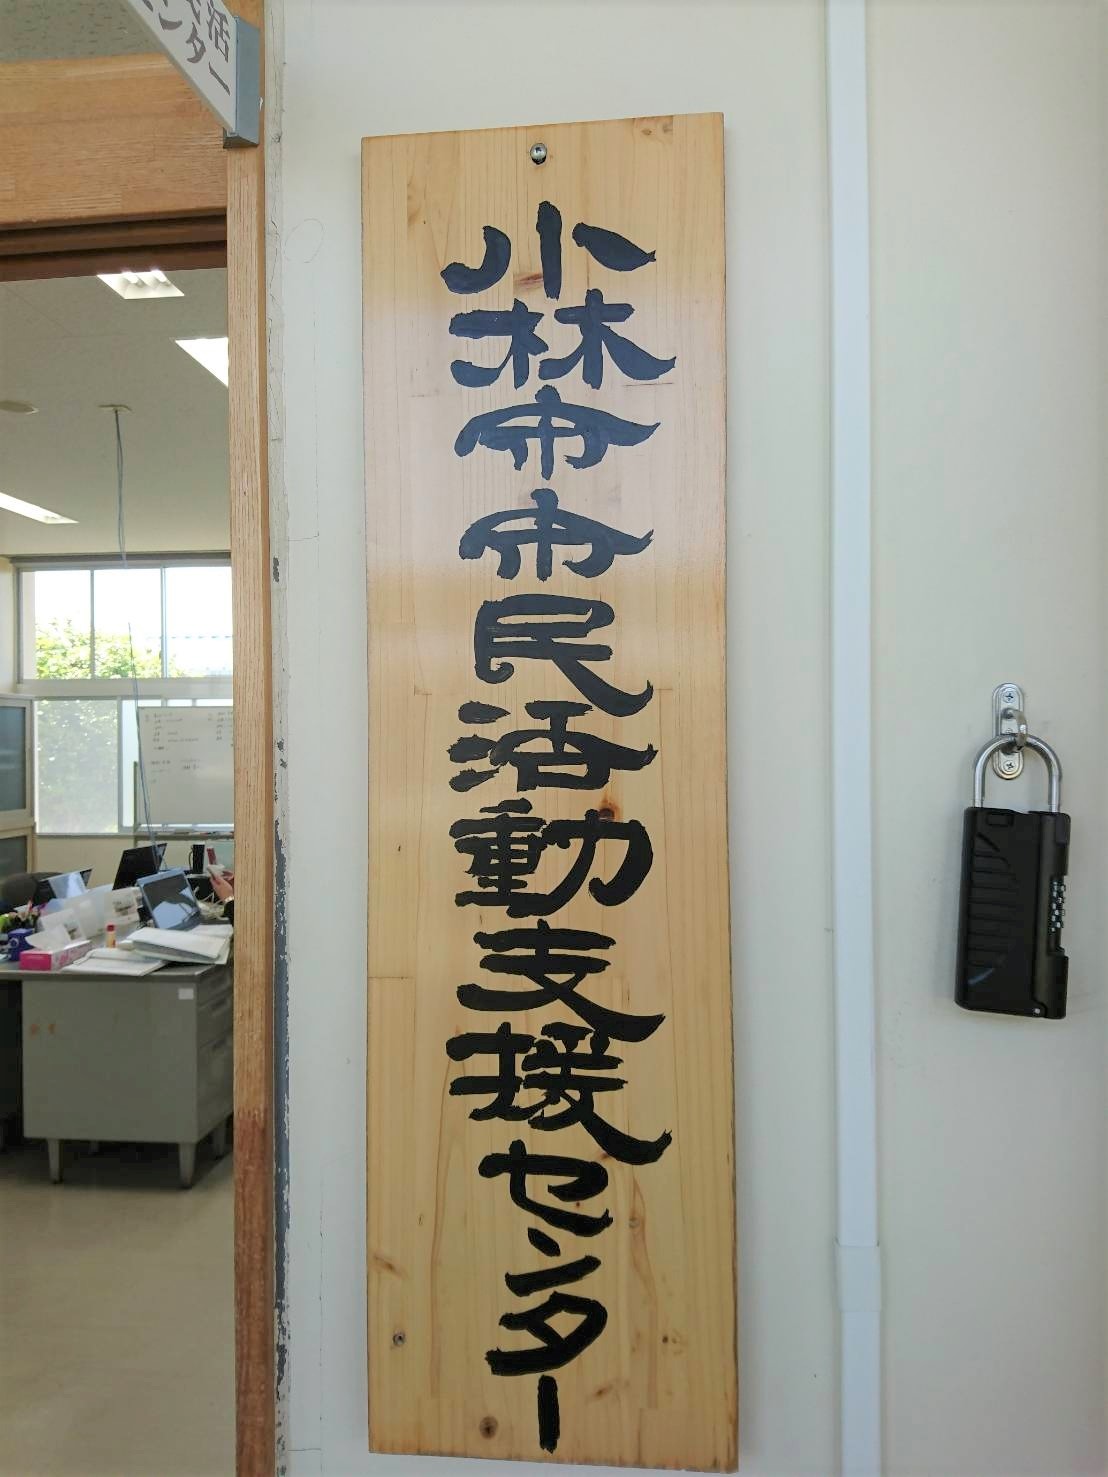 小林市市民活動支援センター
活
ンター